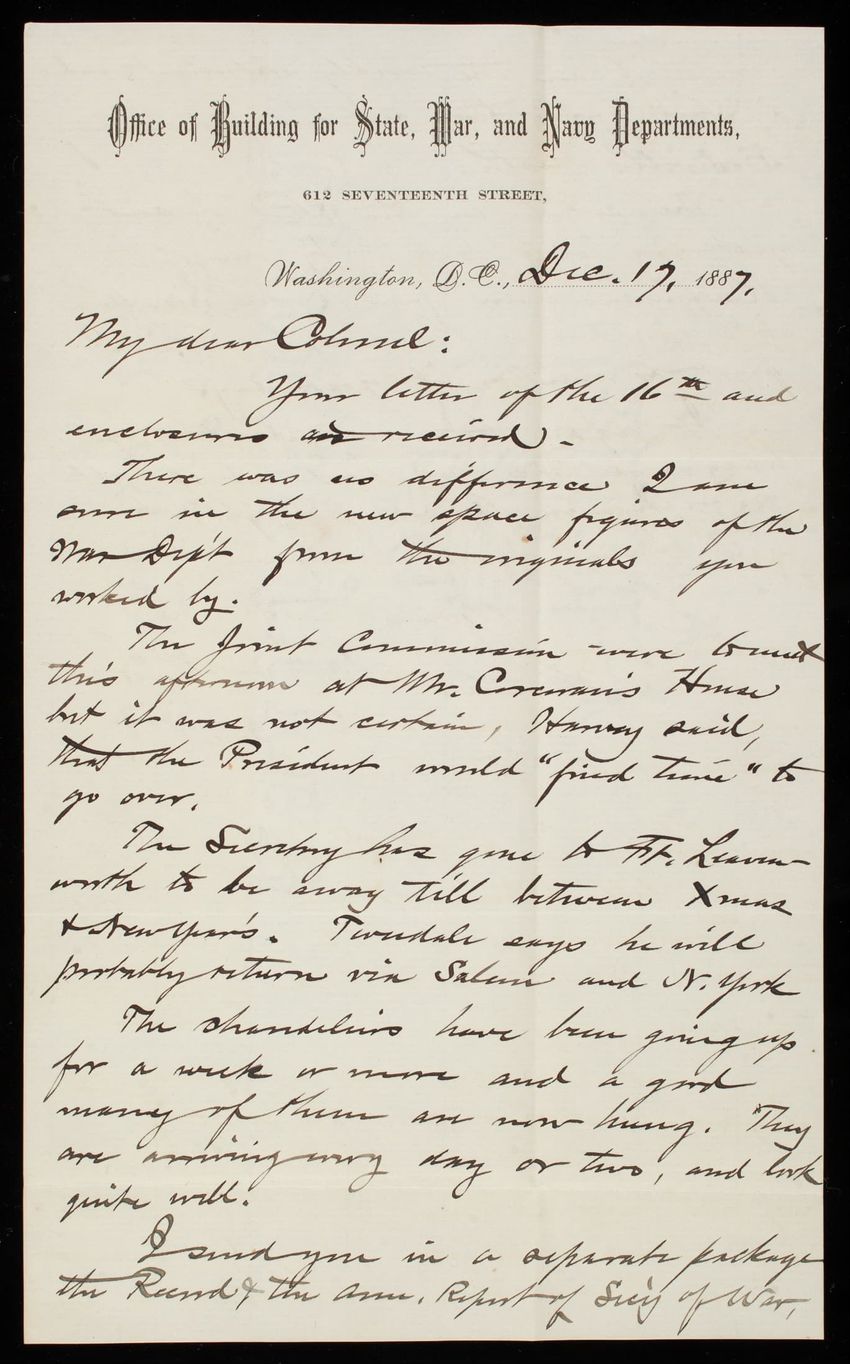 Office of Building for State, War, and Navy Departments,
612 SEVENTEENTH STREET,
Washington, D.C., Dec. 17, 1887.
My dear Colonel:
Your letter of the 16th and
enclosures are received.
There was no difference I am
sure in the new space figures of the
War Dep't from the originals you
worked by.
The Joint Commission were to meet
this afternoon at Mr. Corcoran's House
but it was not certain, Harvey said,
that the President would "find time" to
go over.
The Secretary has gone to Ft. Leaven-
worth to be away till between Xmas
& New Year's. Tweedale says he will
probably return via Salem and N. York
The chandeliers have been going up
for a week or more and a good
many of them are now hung. They
are arriving every day or two, and look
quite well.
I send you in a separate package
the Record & the Ann. Report of Sec'y of War,